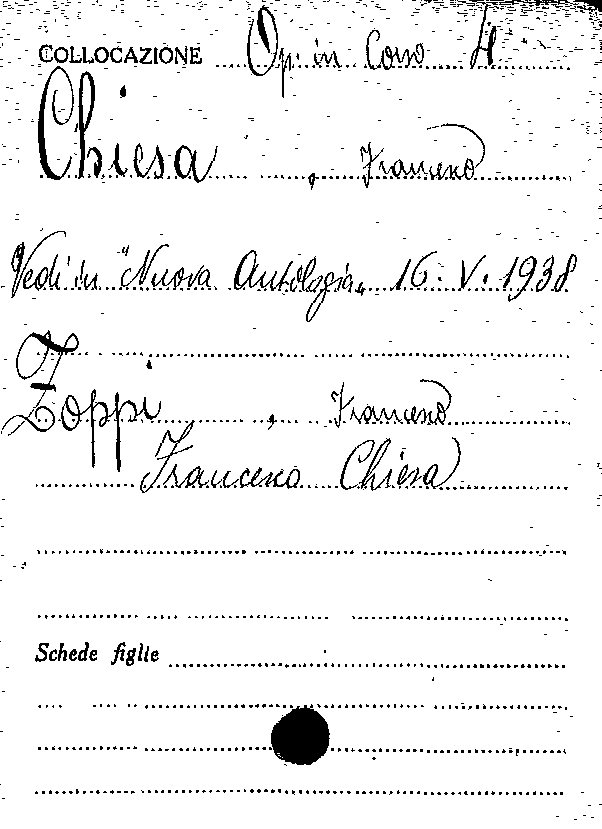 COLLOCAZIONE Op. in Corso H
Chiesa , Francesco
Vedi in "Nuova Antologia" 16. V. 1938
Zoppi , Francesco
Francesco Chiesa
Schede figlie